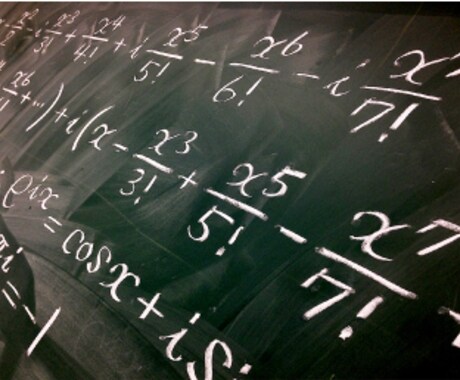 x²/2! - i x³/3! + x⁴/4! + i x⁵/5! - x⁶/6! - i x⁷/7!
x⁶/6! + ...) + i(x - x³/3! + x⁵/5! - x⁷/7! +
e^ix = cosx + i si
πi = -1